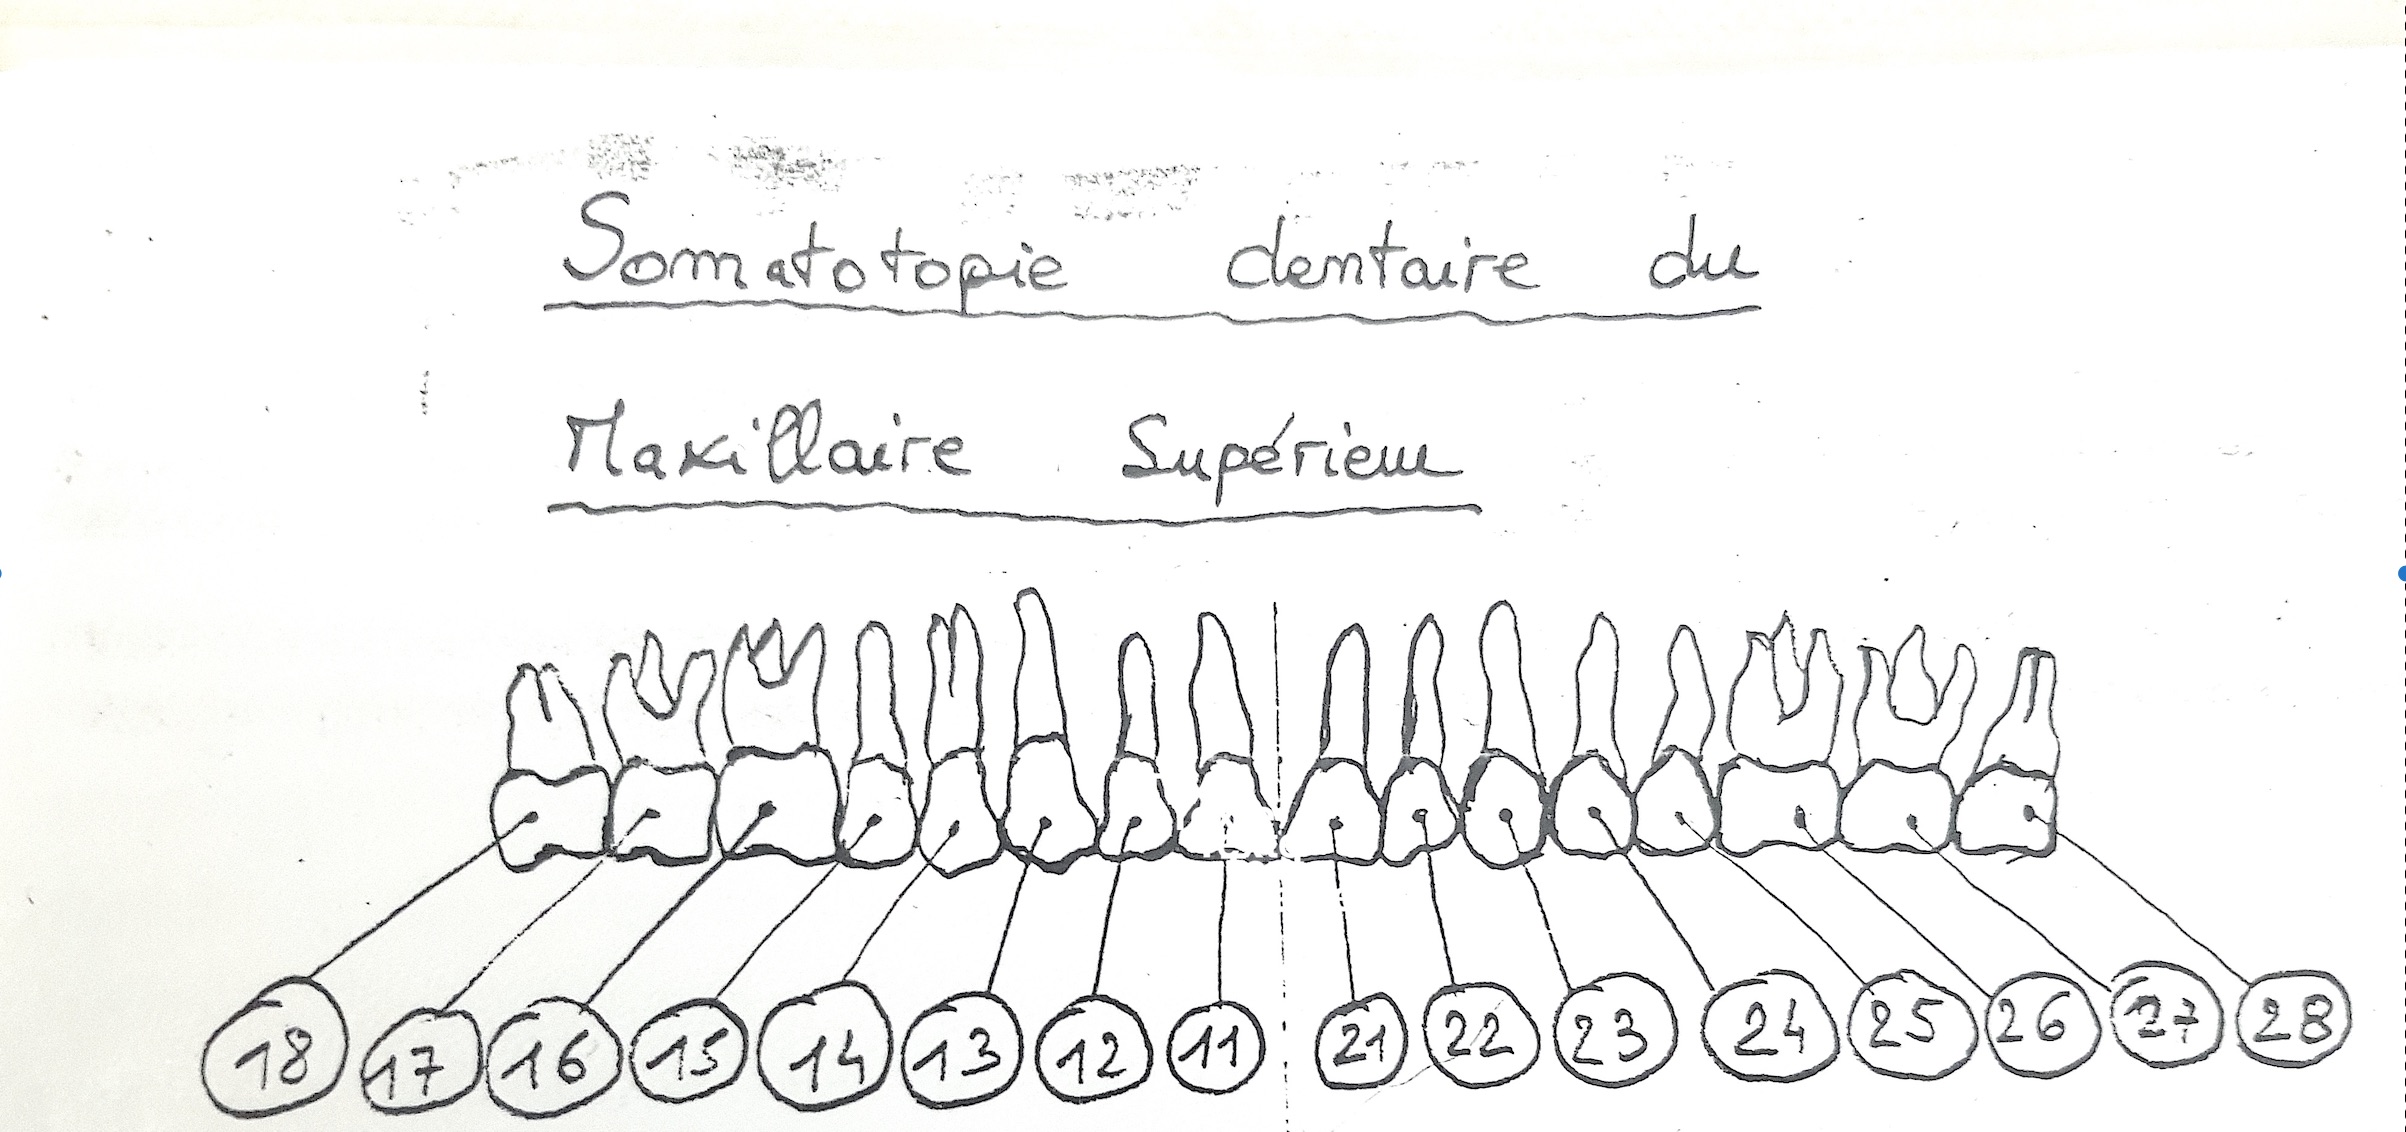 Somatotopie dentaire du
Maxillaire Supérieur
18 17 16 15 14 13 12 11 21 22 23 24 25 26 27 28